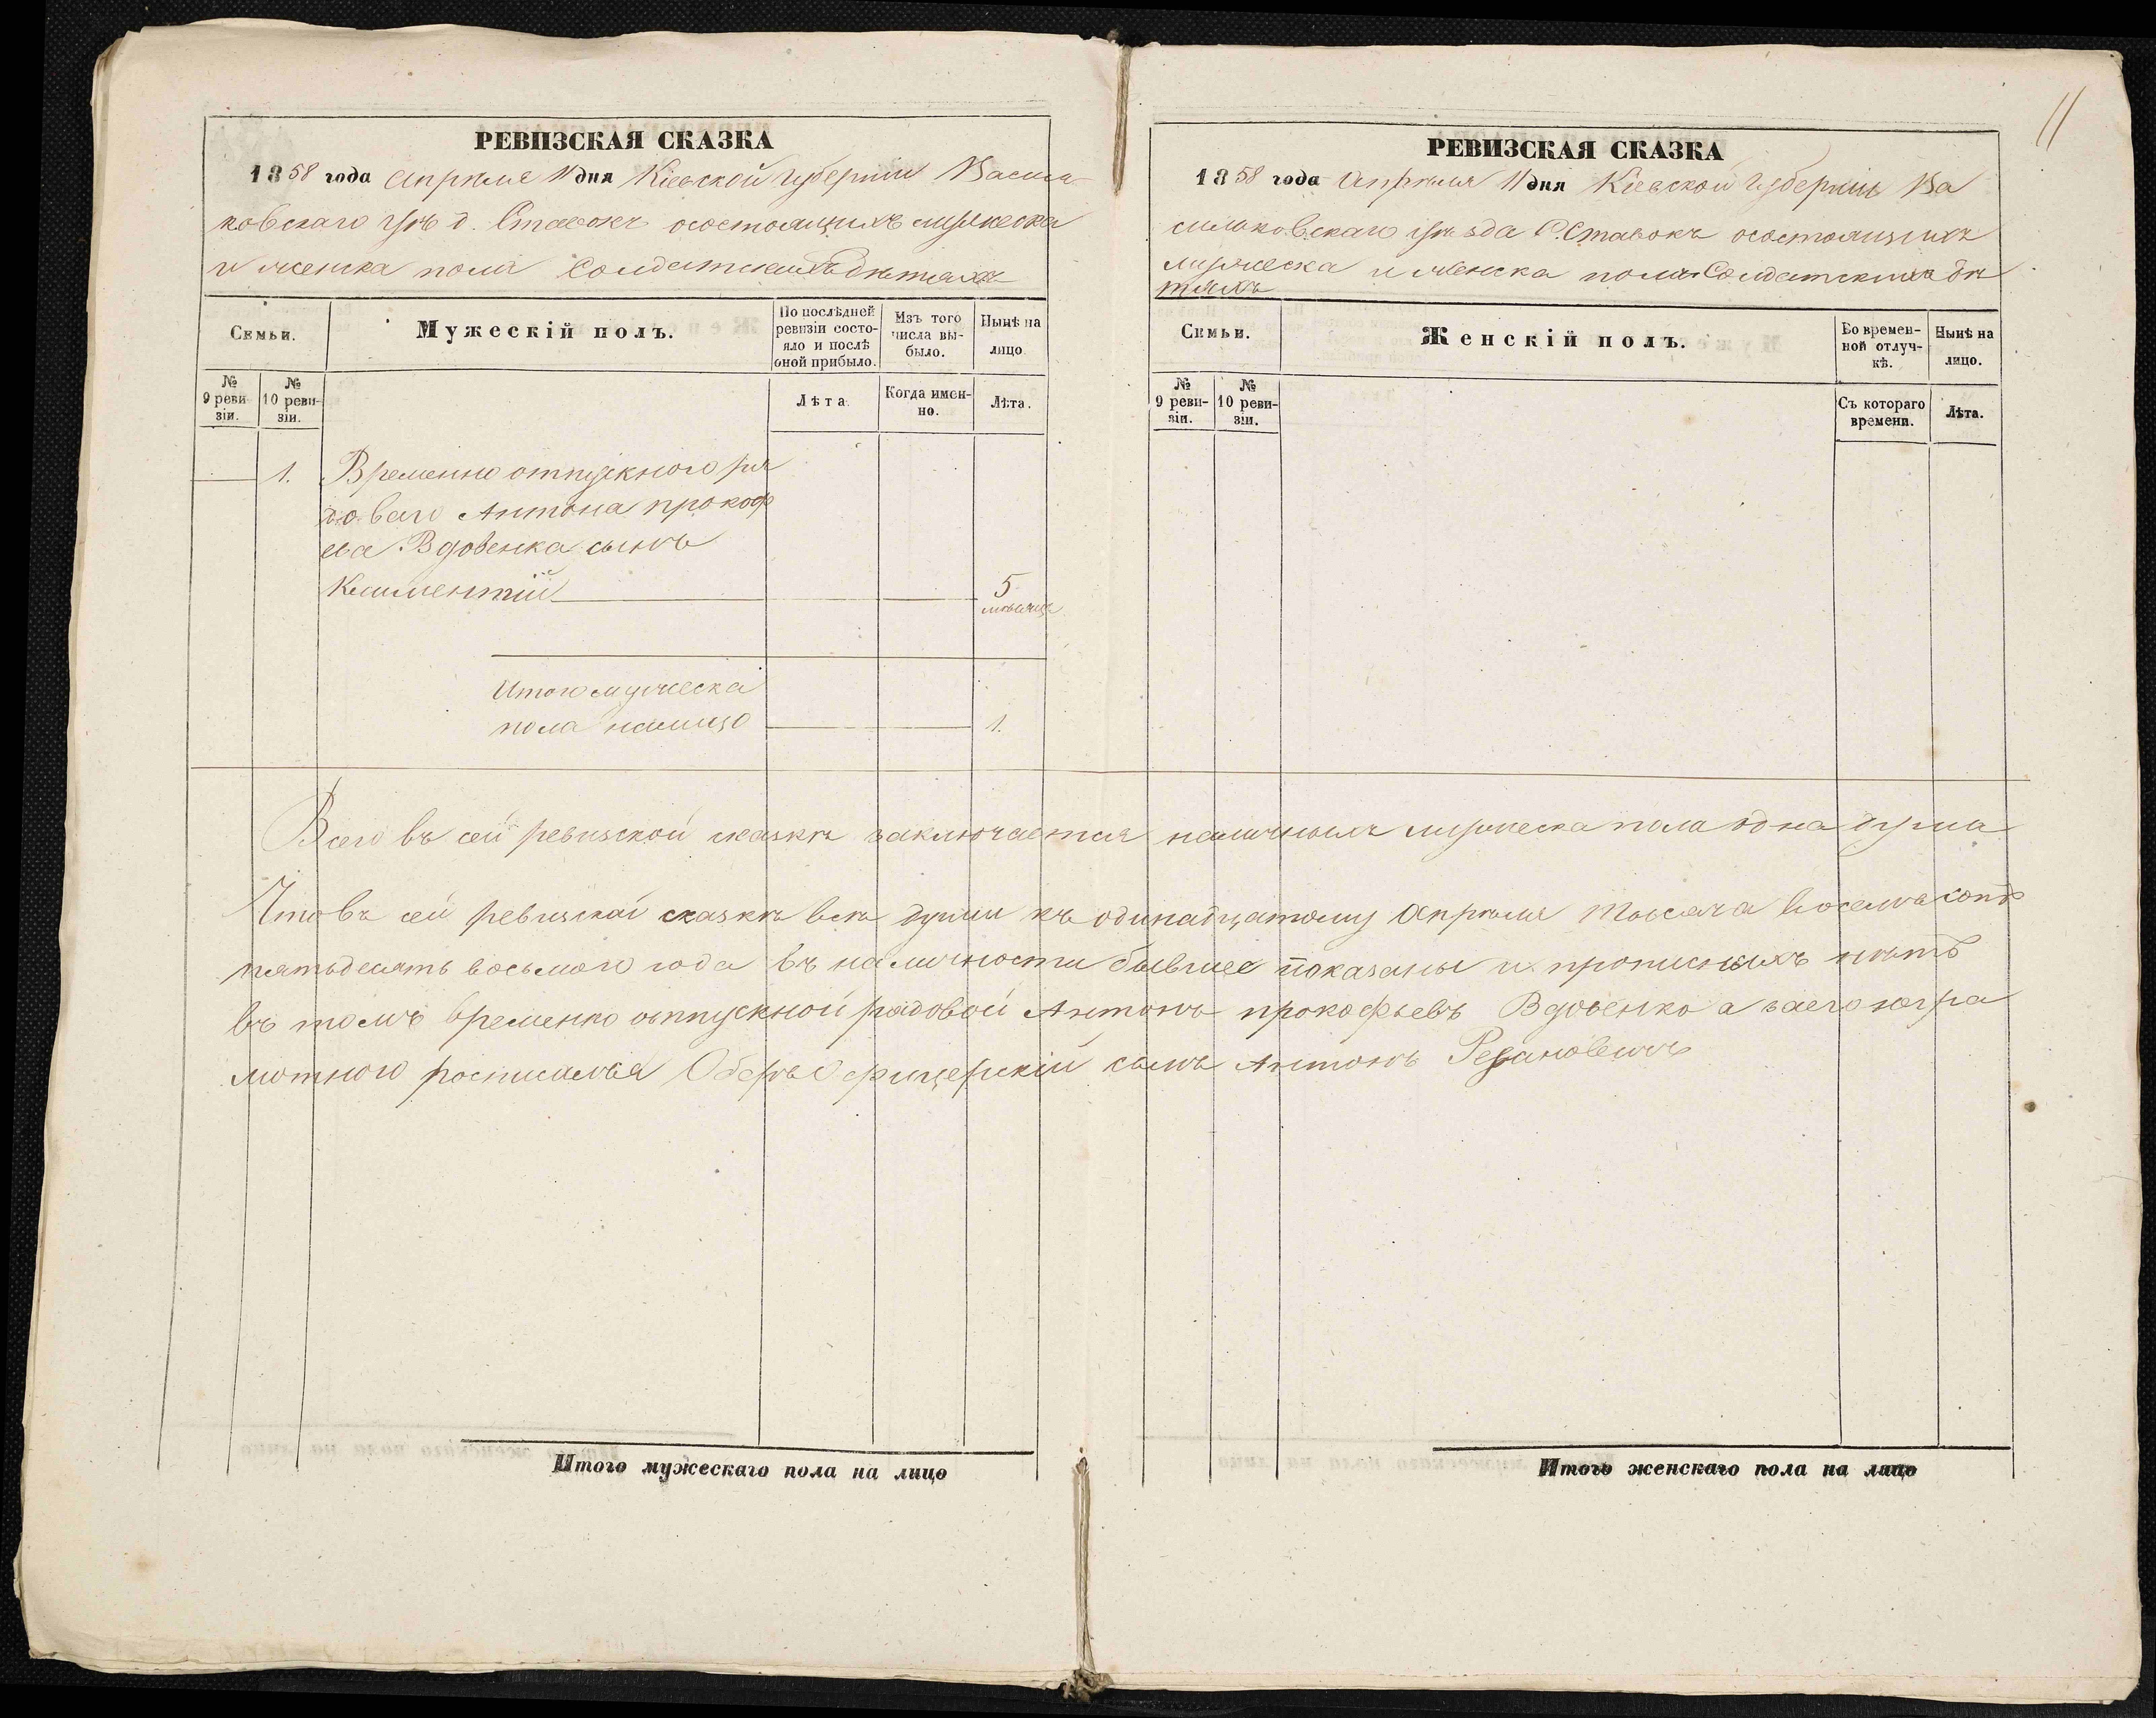 11
РЕВИЗСКАЯ СКАЗКА
1858 года Апреля 11 дня Кіевской Губерніи Василь
ковскаго уѣ д. Ставокъ осостоящихъ мужеска
и женска пола Солдатскихъ дѣтяхъ
Семьи.
Мужескій полъ.
По послѣдней ревизіи состо-
яло и послѣ оной прибыло.
Изъ того числа вы-
было.
Нынѣ на лицо
№ 9 реви-
зіи.
№ 10 реви-
зіи.
Лѣта
Когда имен-
но.
Лѣта.
1. Временно отпускного ря
доваго Антона прокоф
ева Вдовенка сынъ
Климентій 5
мѣсяце
Итого мужеска
пола налицо 1.
РЕВИЗСКАЯ СКАЗКА
1858 года Апреля 11 дня Кіевской Губерніи Ва
сильковскаго уѣзда С. Ставокъ осостоящихъ
мужеска и женска пола Солдатскихъ дѣ
тяхъ
Семьи.
Женскій полъ.
Во времен-
ной отлуч-
кѣ.
Нынѣ на лицо.
№ 9 реви-
зіи.
№ 10 реви-
зіи.
Съ котораго времени.
Лѣта.
Всего въ сей ревизской сказкѣ заключается наличныхъ мужеска пола одна душа
Что въ сей ревизской сказкѣ всѣ души къ одинадцатому Апреля тысяча восемь сотъ
пятьдесятъ восьмого года въ наличности бывшее показаны и прописныхъ нѣтъ
въ томъ временно отпускной рядовой Антонъ прокофьевъ Вдовенко а заего негра
мотного росписался Оберъ Офицерскій сынъ Антонъ
Итого мужескаго пола на лицо
Итого женскаго пола на лицо